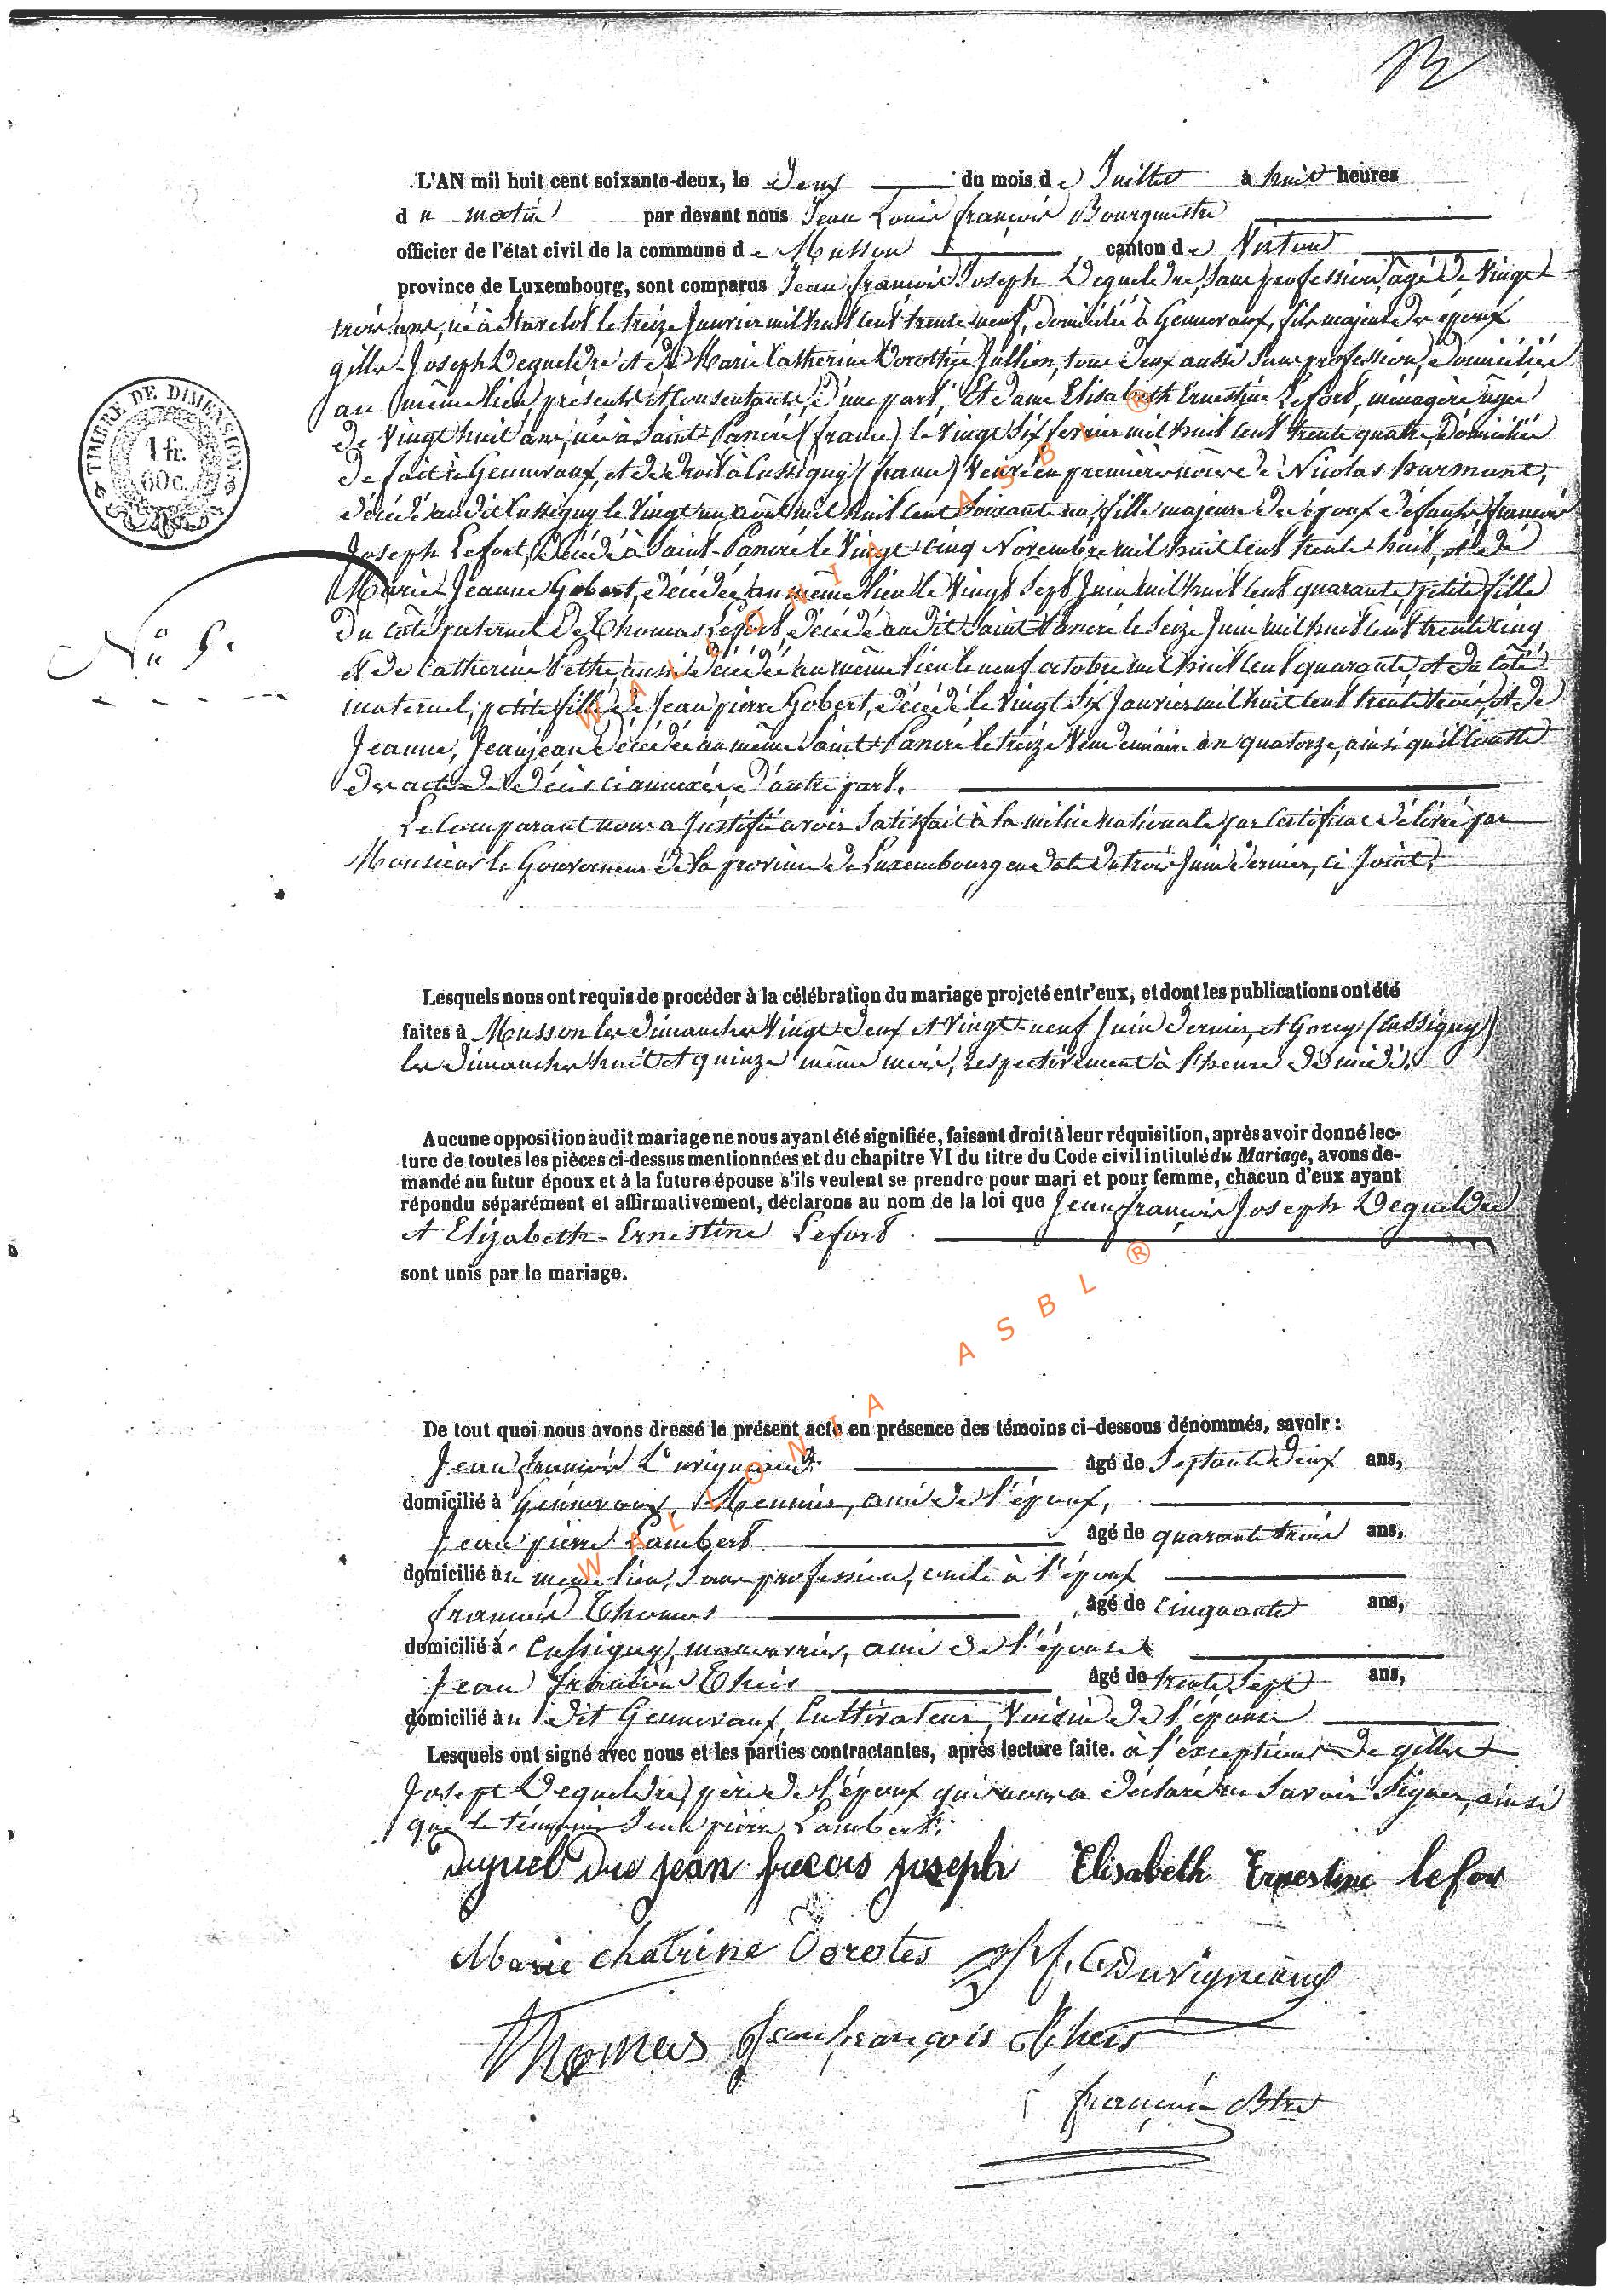 L'AN mil huit cent soixante-deux, le deux du mois de Juillet à huit heures
du matin par devant nous Jean Louis françois Bourguestre
officier de l'état civil de la commune de Musson canton de Virton
province de Luxembourg, sont comparus Jean françois Joseph Dequeldre, sans profession, âgé de Vingt
trois ans, né à Stavelot le treize Janvier mil huit cent trente neuf, domicilié à Gennevaux, fils majeur des époux
gille Joseph Dequeldre et de Marie Catherine Dorothée Jullion, tous deux aussi sans profession, domiciliés
au même lieu, présents et consentants, d'une part, Et dame Elisabeth Ernestine Lefort, ménagère âgée
de Vingt huit ans, née à Saint-Pancré (france) le Vingt Six fevrier mil huit cent trente quatre, Domiciliée
de fait à Gennevaux, et de droit à Cussigny (france) Veuve en premières noces de Nicolas harmant,
décédé audit Cussigny le Vingt un août mil huit cent Soixante un, fille majeure des époux défunts, françois
Joseph Lefort, décédé à Saint-Pancré le Vingt-cinq Novembre mil huit cent trente-huit, et de
Marie Jeanne Gobert, décédée au même lieu le Vingt Sept Juin mil huit cent quarante, petite fille
du côté paternel de Thomas Lefort, décédé audit Saint Pancré le Seize Juin mil huit cent trente cinq
et de Catherine Pethe, aussi décédée au même lieu le neuf octobre mil huit cent quarante, et du côté
maternel, petite fille de Jean pierre Gobert, décédé le Vingt Six Janvier mil huit cent trente trois, et de
Jeanne, Jeanjean décédée au même Saint-Pancré le treize Vendemiaire an quatorze, ainsi qu'il conste
des actes de décès ci annexés, d'autre part.
Le Comparant nous a Justifié avoir Satisfait à la milice nationale par Certificat délivré par
Monsieur le Gouverneur de la province de Luxembourg en date du trois Juin dernier, ci Joint.
TIMBRE DE DIMENSION
1 fr.
60 c.
N° 5.
Lesquels nous ont requis de procéder à la célébration du mariage projeté entr'eux, et dont les publications ont été
faites à Musson les dimanches Vingt-deux et Vingt-neuf Juin dernier, et Gorcy (Cussigny)
les dimanches huit et quinze même mois, respectivement à l'heure de midi.
Aucune opposition audit mariage ne nous ayant été signifiée, faisant droit à leur réquisition, après avoir donné lec-
ture de toutes les pièces ci-dessus mentionnées et du chapitre VI du titre du Code civil intitulé du Mariage, avons de-
mandé au futur époux et à la future épouse s'ils veulent se prendre pour mari et pour femme, chacun d'eux ayant
répondu séparément et affirmativement, déclarons au nom de la loi que Jean françois Joseph Dequeldre
et Elizabeth-Ernestine Lefort.
sont unis par le mariage.
De tout quoi nous avons dressé le présent acte en présence des témoins ci-dessous dénommés, savoir :
Jean françois Duvigneaud âgé de Septante deux ans,
domicilié à Gennevaux, Meunier, ami de l'époux,
Jean pierre Lambert âgé de quarante trois ans,
domicilié au même lieu, Sans profession, ami à l'époux
françois Thomas âgé de cinquante ans,
domicilié à Cussigny, manœuvrier, ami de l'épouse
Jean françois Theis âgé de trente Sept ans,
domicilié au dit Gennevaux, Cultivateur, Voisin de l'épouse
Lesquels ont signé avec nous et les parties contractantes, après lecture faite. à l'exception de gille
Joseph Dequeldre, père de l'époux qui nous a déclaré ne Savoir Signer, ainsi
que le témoin Jean pierre Lambert.
Dequel Dre jean fracois joseph Elisabeth Ernestine lefort
Marie chatrine Dorotes J. f. Duvigneaud
Thomas Jean françois Theis
françois Btre
WALLONIA ASBL ®
WALLONIA ASBL ®